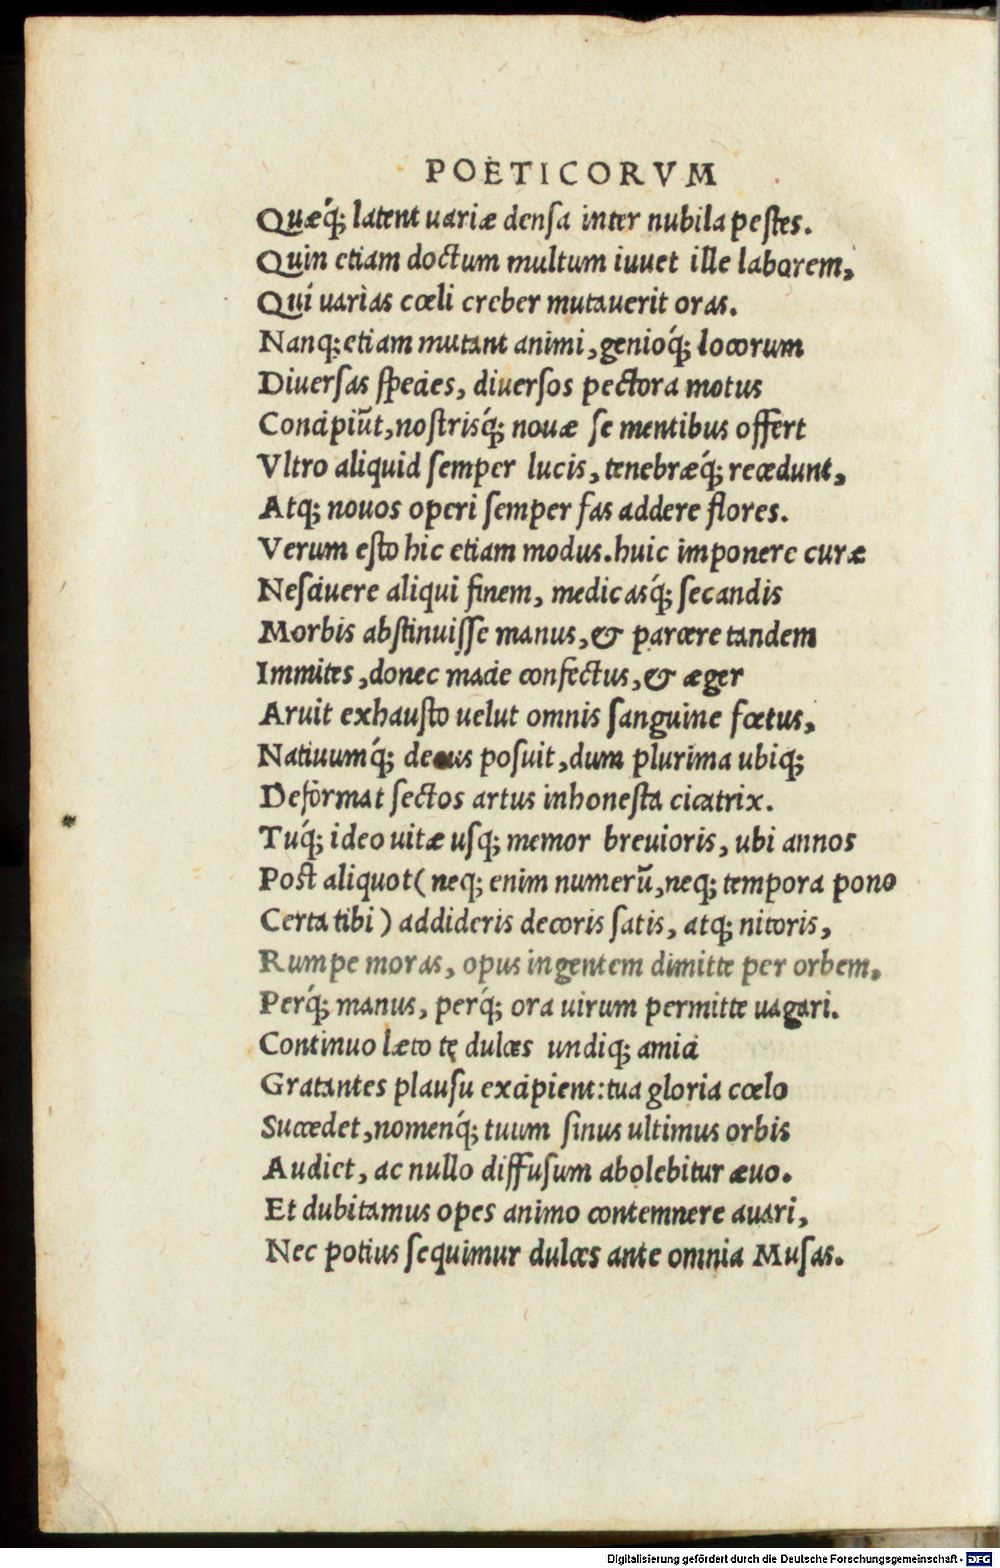 POETICORVM
Quæq́; latent uariæ densa inter nubila pestes.
Quin etiam doctum multum iuuet ille laborem,
Qui uarias cœli creber mutauerit oras.
Nanq; etiam mutant animi, genioq́; locorum
Diuersas species, diuersos pectora motus
Concipiũt, nostrisq́; nouæ se mentibus offert
Vltro aliquid semper lucis, tenebræq́; recedunt,
Atq; nouos operi semper fas addere flores.
Verum esto hic etiam modus. huic imponere curæ
Nesciuere aliqui finem, medicasq́; secandis
Morbis abstinuisse manus, & parcere tandem
Immites, donec macie confectus, & æger
Aruit exhausto uelut omnis sanguine fœtus,
Natiuumq́; decus posuit, dum plurima ubiq;
Deformat sectos artus inhonesta cicatrix.
Tuq́; ideo uitæ usq; memor breuioris, ubi annos
Post aliquot (neq; enim numerũ, neq; tempora pono
Certa tibi) addideris decoris satis, atq; nitoris,
Rumpe moras, opus ingentem dimitte per orbem.
Perq́; manus, perq́; ora uirum permitte uagari.
Continuo læto tę dulces undiq; amici
Gratantes plausu excipient: tua gloria cœlo
Succedet, nomenq́; tuum sinus ultimus orbis
Audiet, ac nullo diffusum abolebitur æuo.
Et dubitamus opes animo contemnere auari,
Nec potius sequimur dulces ante omnia Musas.
Digitalisierung gefördert durch die Deutsche Forschungsgemeinschaft - DFG